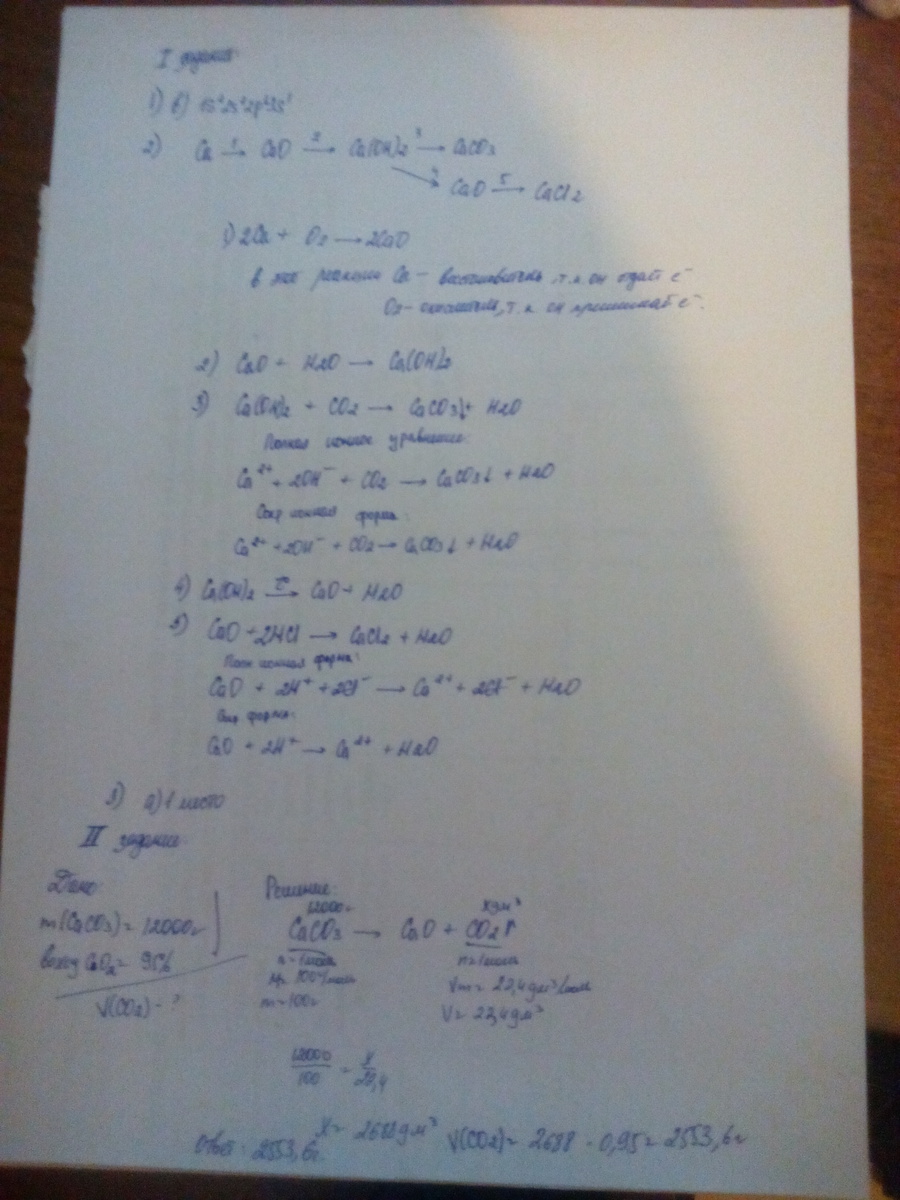 I задание
1) в) 1s²2s²2p⁶3s¹
2) Ca →¹ CaO →² Ca(OH)2 →³ CaCO3
→⁴ CaO →⁵ CaCl2
1) 2Ca + O2 → 2CaO
в этой реакции Ca – восстановитель, т.к. он отдаёт e⁻
O2 – окислитель, т.к. он принимает e⁻.
2) CaO + H2O → Ca(OH)2
3) Ca(OH)2 + CO2 → CaCO3↓ + H2O
Полное ионное уравнение:
Ca²⁺ + 2OH⁻ + CO2 → CaCO3↓ + H2O
Сокр ионная форма:
Ca²⁺ + 2OH⁻ + CO2 → CaCO3↓ + H2O
4) Ca(OH)2 →t° CaO + H2O
5) CaO + 2HCl → CaCl2 + H2O
Полн ионная форма:
CaO + 2H⁺ + 2Cl⁻ → Ca²⁺ + 2Cl⁻ + H2O
Сокр форма:
CaO + 2H⁺ → Ca²⁺ + H2O
3) а) 1 место
II задание.
Дано: Решение:
12000г х дм³
m(CaCO3) = 12000г CaCO3 → CaO + CO2↑
выход CO2 = 95% n=1моль n=1моль
M = 100г/моль Vm = 22,4дм³/моль
V(CO2) - ? m=100г V= 22,4дм³
12000/100 = x/22,4
x = 2688дм³ V(CO2) = 2688 · 0,95 = 2553,6г
Ответ: 2553,6г.